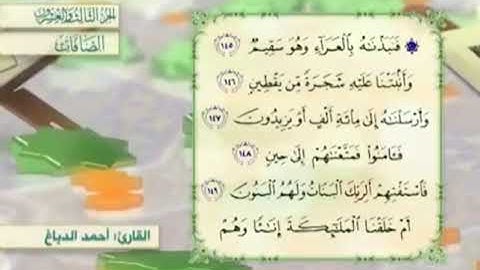 الجزء الثالث والعشرون
الصافات
فَنَبَذْنَٰهُ بِٱلْعَرَآءِ وَهُوَ سَقِيمٌ ١٤٥
وَأَنۢبَتْنَا عَلَيْهِ شَجَرَةً مِّن يَقْطِينٍ ١٤٦
وَأَرْسَلْنَٰهُ إِلَىٰ مِا۟ئَةِ أَلْفٍ أَوْ يَزِيدُونَ ١٤٧
فَـَٔامَنُوا۟ فَمَتَّعْنَٰهُمْ إِلَىٰ حِينٍ ١٤٨
فَٱسْتَفْتِهِمْ أَلِرَبِّكَ ٱلْبَنَاتُ وَلَهُمُ ٱلْبَنُونَ ١٤٩
أَمْ خَلَقْنَا ٱلْمَلَٰٓئِكَةَ إِنَٰثًا وَهُمْ
القارئ: أحمد الدباغ